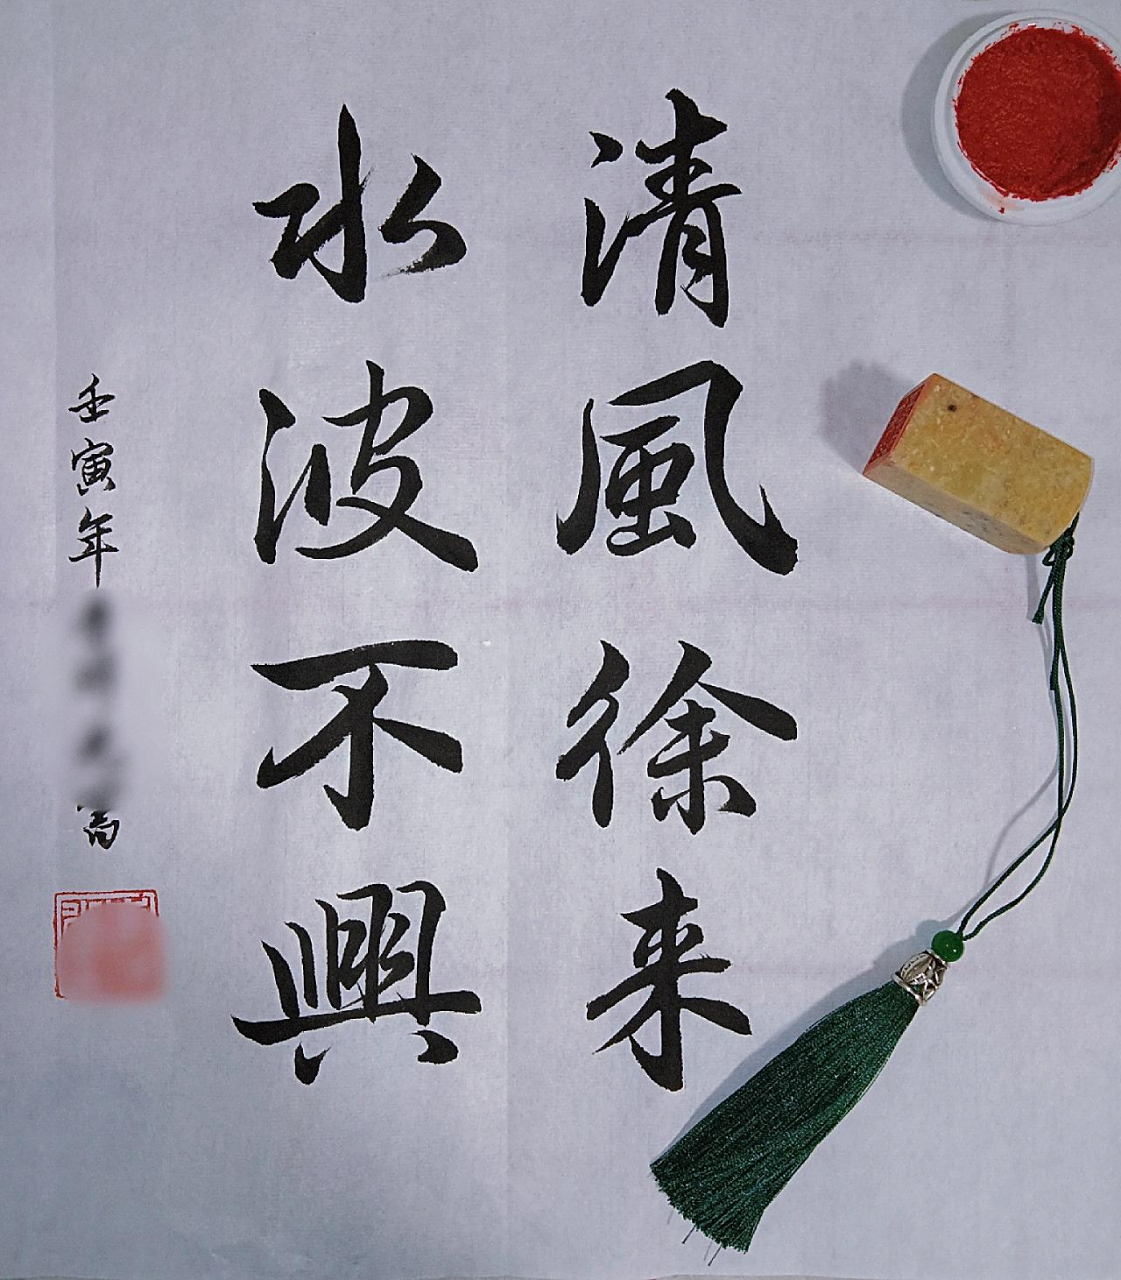 清風徐来
水波不興
壬寅年